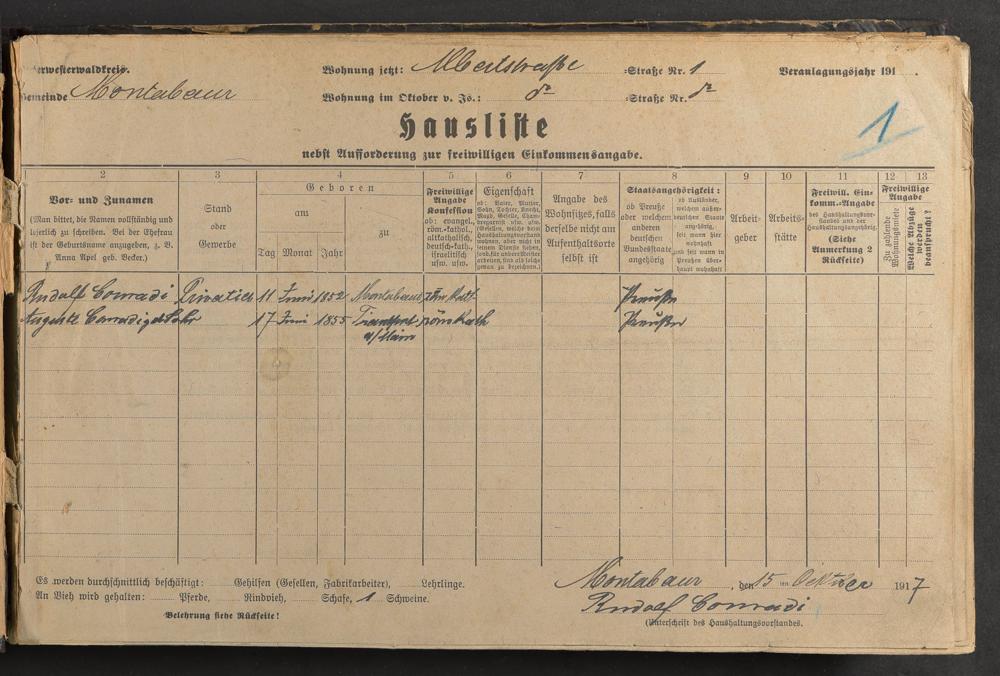 erwesterwaldkreis. Wohnung jetzt: Albertstraße =Straße Nr. 1 Veranlagungsjahr 191
Gemeinde Montabaur Wohnung im Oktober v. Js.: do =Straße Nr. do
1
Hausliste
nebst Aufforderung zur freiwilligen Einkommensangabe.
2 3 4 5 6 7 8 9 10 11 12 13
Vor- und Zunamen
(Man bittet, die Namen vollständig und
leserlich zu schreiben. Bei der Ehefrau
ist der Geburtsname anzugeben, z. B.
Anna Apel geb. Becker.)
Stand
oder
Gewerbe
Geboren
am
zu
Tag Monat Jahr
Freiwillige
Angabe
Konfession
ob: evangel.,
röm.-kathol.,
altkatholisch,
deutsch-kath.,
israelitisch
usw. usw.
Eigenschaft
ob: Vater, Mutter,
Sohn, Tochter, Knecht,
Magd, Geselle,
Angabe des
Wohnsitzes, falls
derselbe nicht am
Aufenthaltsorte
selbst ist
Staatsangehörigkeit:
ob Preuße
oder welchem
anderen
deutschen
Bundesstaate
angehörig
ob Ausländer,
welchem außer-
deutschen Staate
angehörig,
seit wann hier
wohnhaft
und seit wann in
Preußen über-
haupt wohnhaft
Arbeit-
geber
Arbeits-
stätte
Freiwill. Ein-
komm.-Angabe
des Haushaltungsvor-
standes und der
Haushaltungsangehörig.
(Siehe
Anmerkung 2
Rückseite)
Freiwillige
Angabe
Zu zahlende
Wohnungsmiete
Welche Abzüge
werden
beansprucht?
Rudolf Conradi Privatier 11 Juni 1852 Montabaur röm Kath Preuße
Auguste Conradi geb Lohr 17 Juni 1855 Frankfurt röm Kath Preuße
a/Main
Es werden durchschnittlich beschäftigt: Gehilfen (Gesellen, Fabrikarbeiter), Lehrlinge.
An Vieh wird gehalten: Pferde, Rindvieh, Schafe, 1 Schweine.
Belehrung siehe Rückseite!
Montabaur, den 15 ten Oktober 1917
Rudolf Conradi
(Unterschrift des Haushaltungsvorstandes.